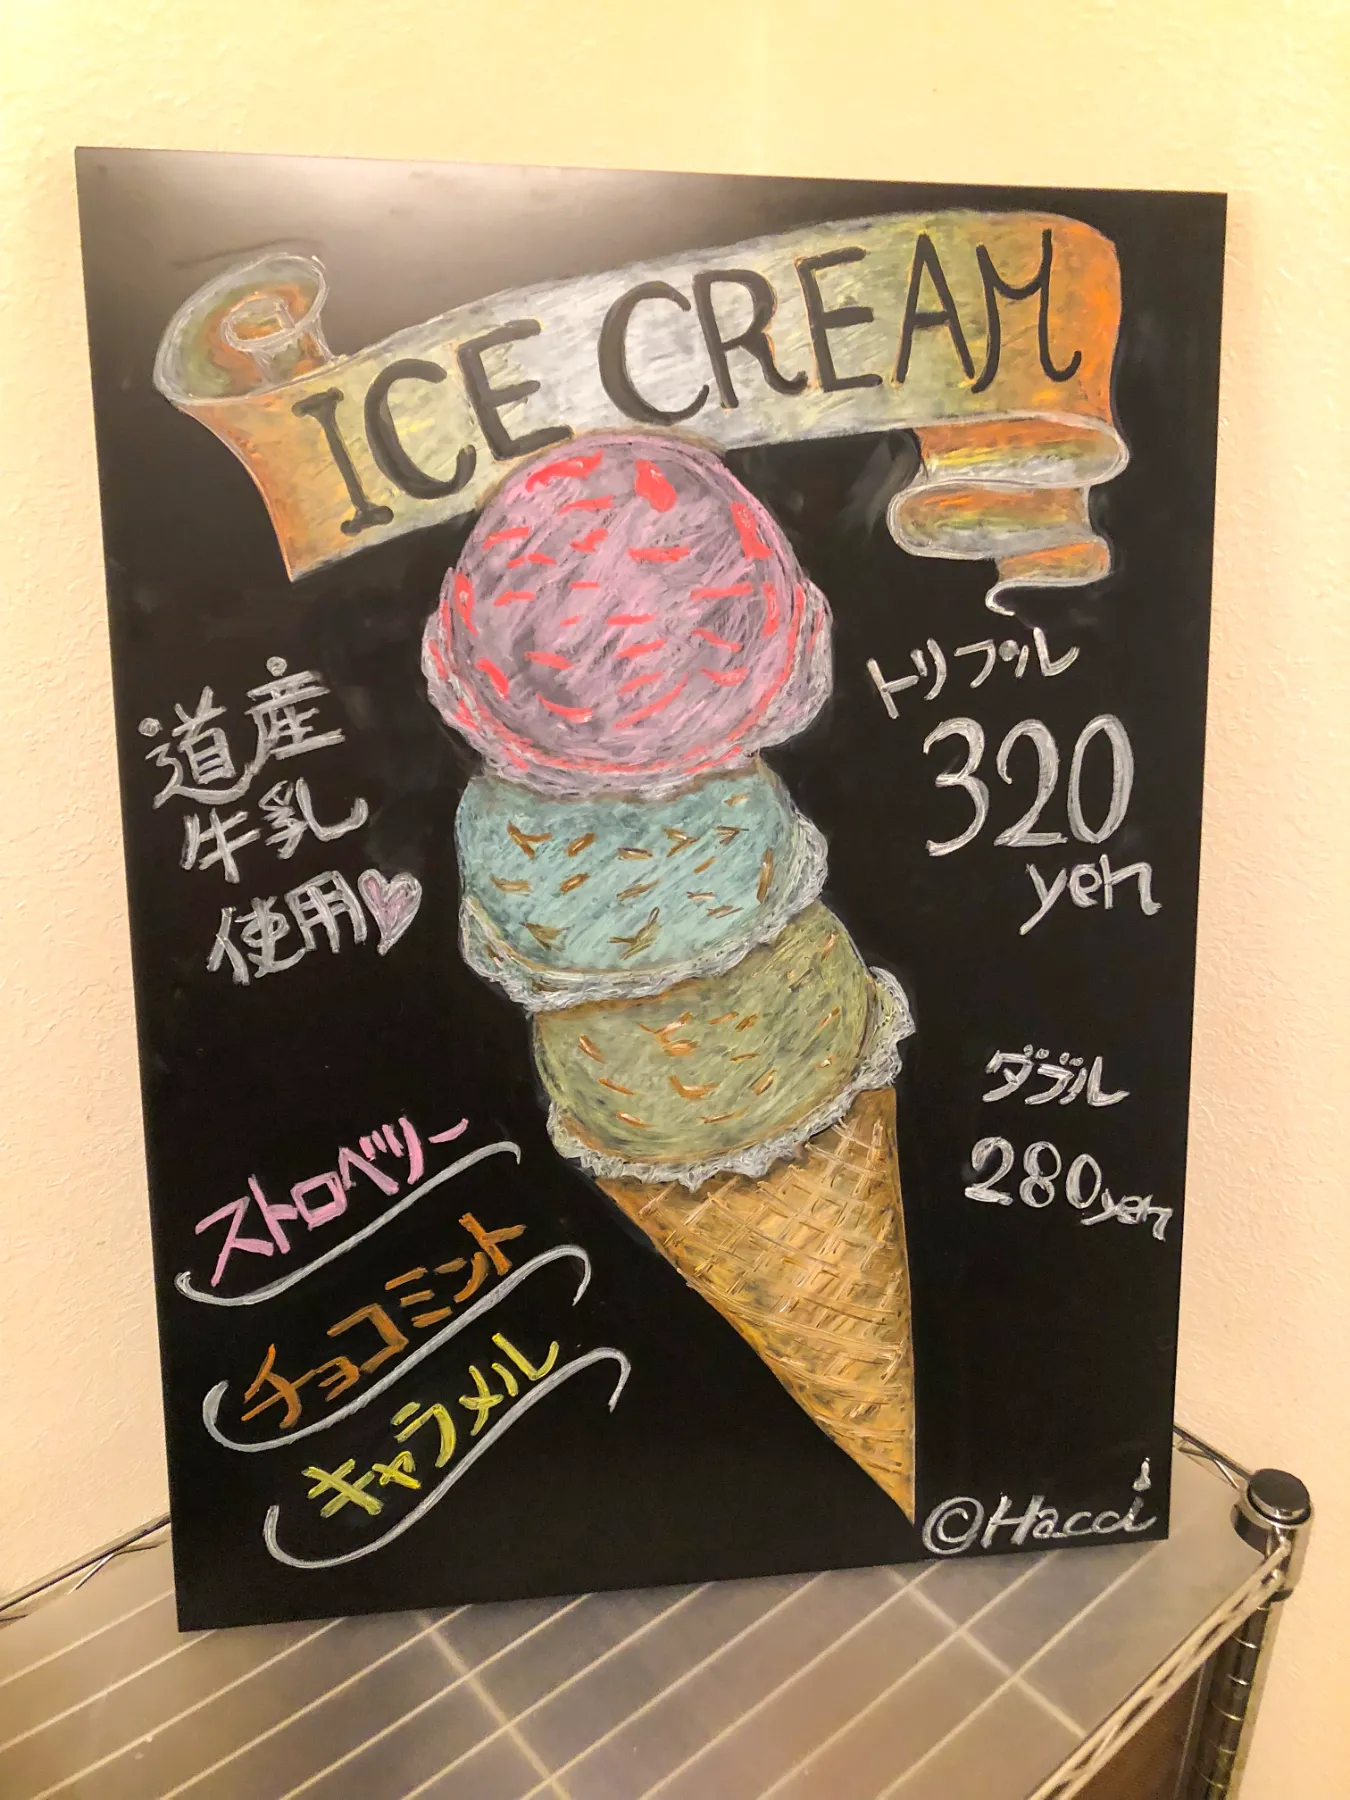 ICE CREAM
道産
牛乳
使用
トリプル
320
yen
ダブル
280yen
ストロベリー
チョコミント
キャラメル
©Hacci